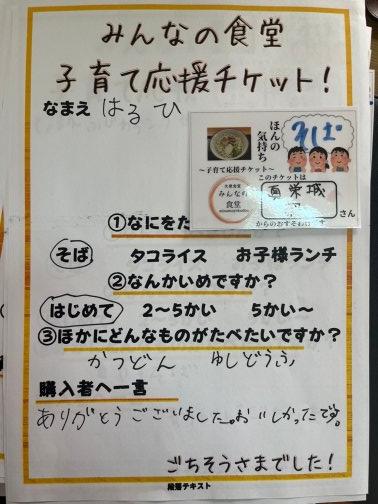 みんなの食堂
子育て応援チケット!
なまえ はるひ
ほんの気持ち
そば
~子育て応援チケット~
このチケットは
みんなの
食堂
真栄城
さん
からのおすそわけ
①なにをた
そば タコライス お子様ランチ
②なんかいめですか?
はじめて 2~5かい 5かい~
③ほかにどんなものがたべたいですか?
かつどん ゆしどうふ
購入者へ一言
ありがとうございました。おいしかったです。
ごちそうさまでした!
段落テキスト